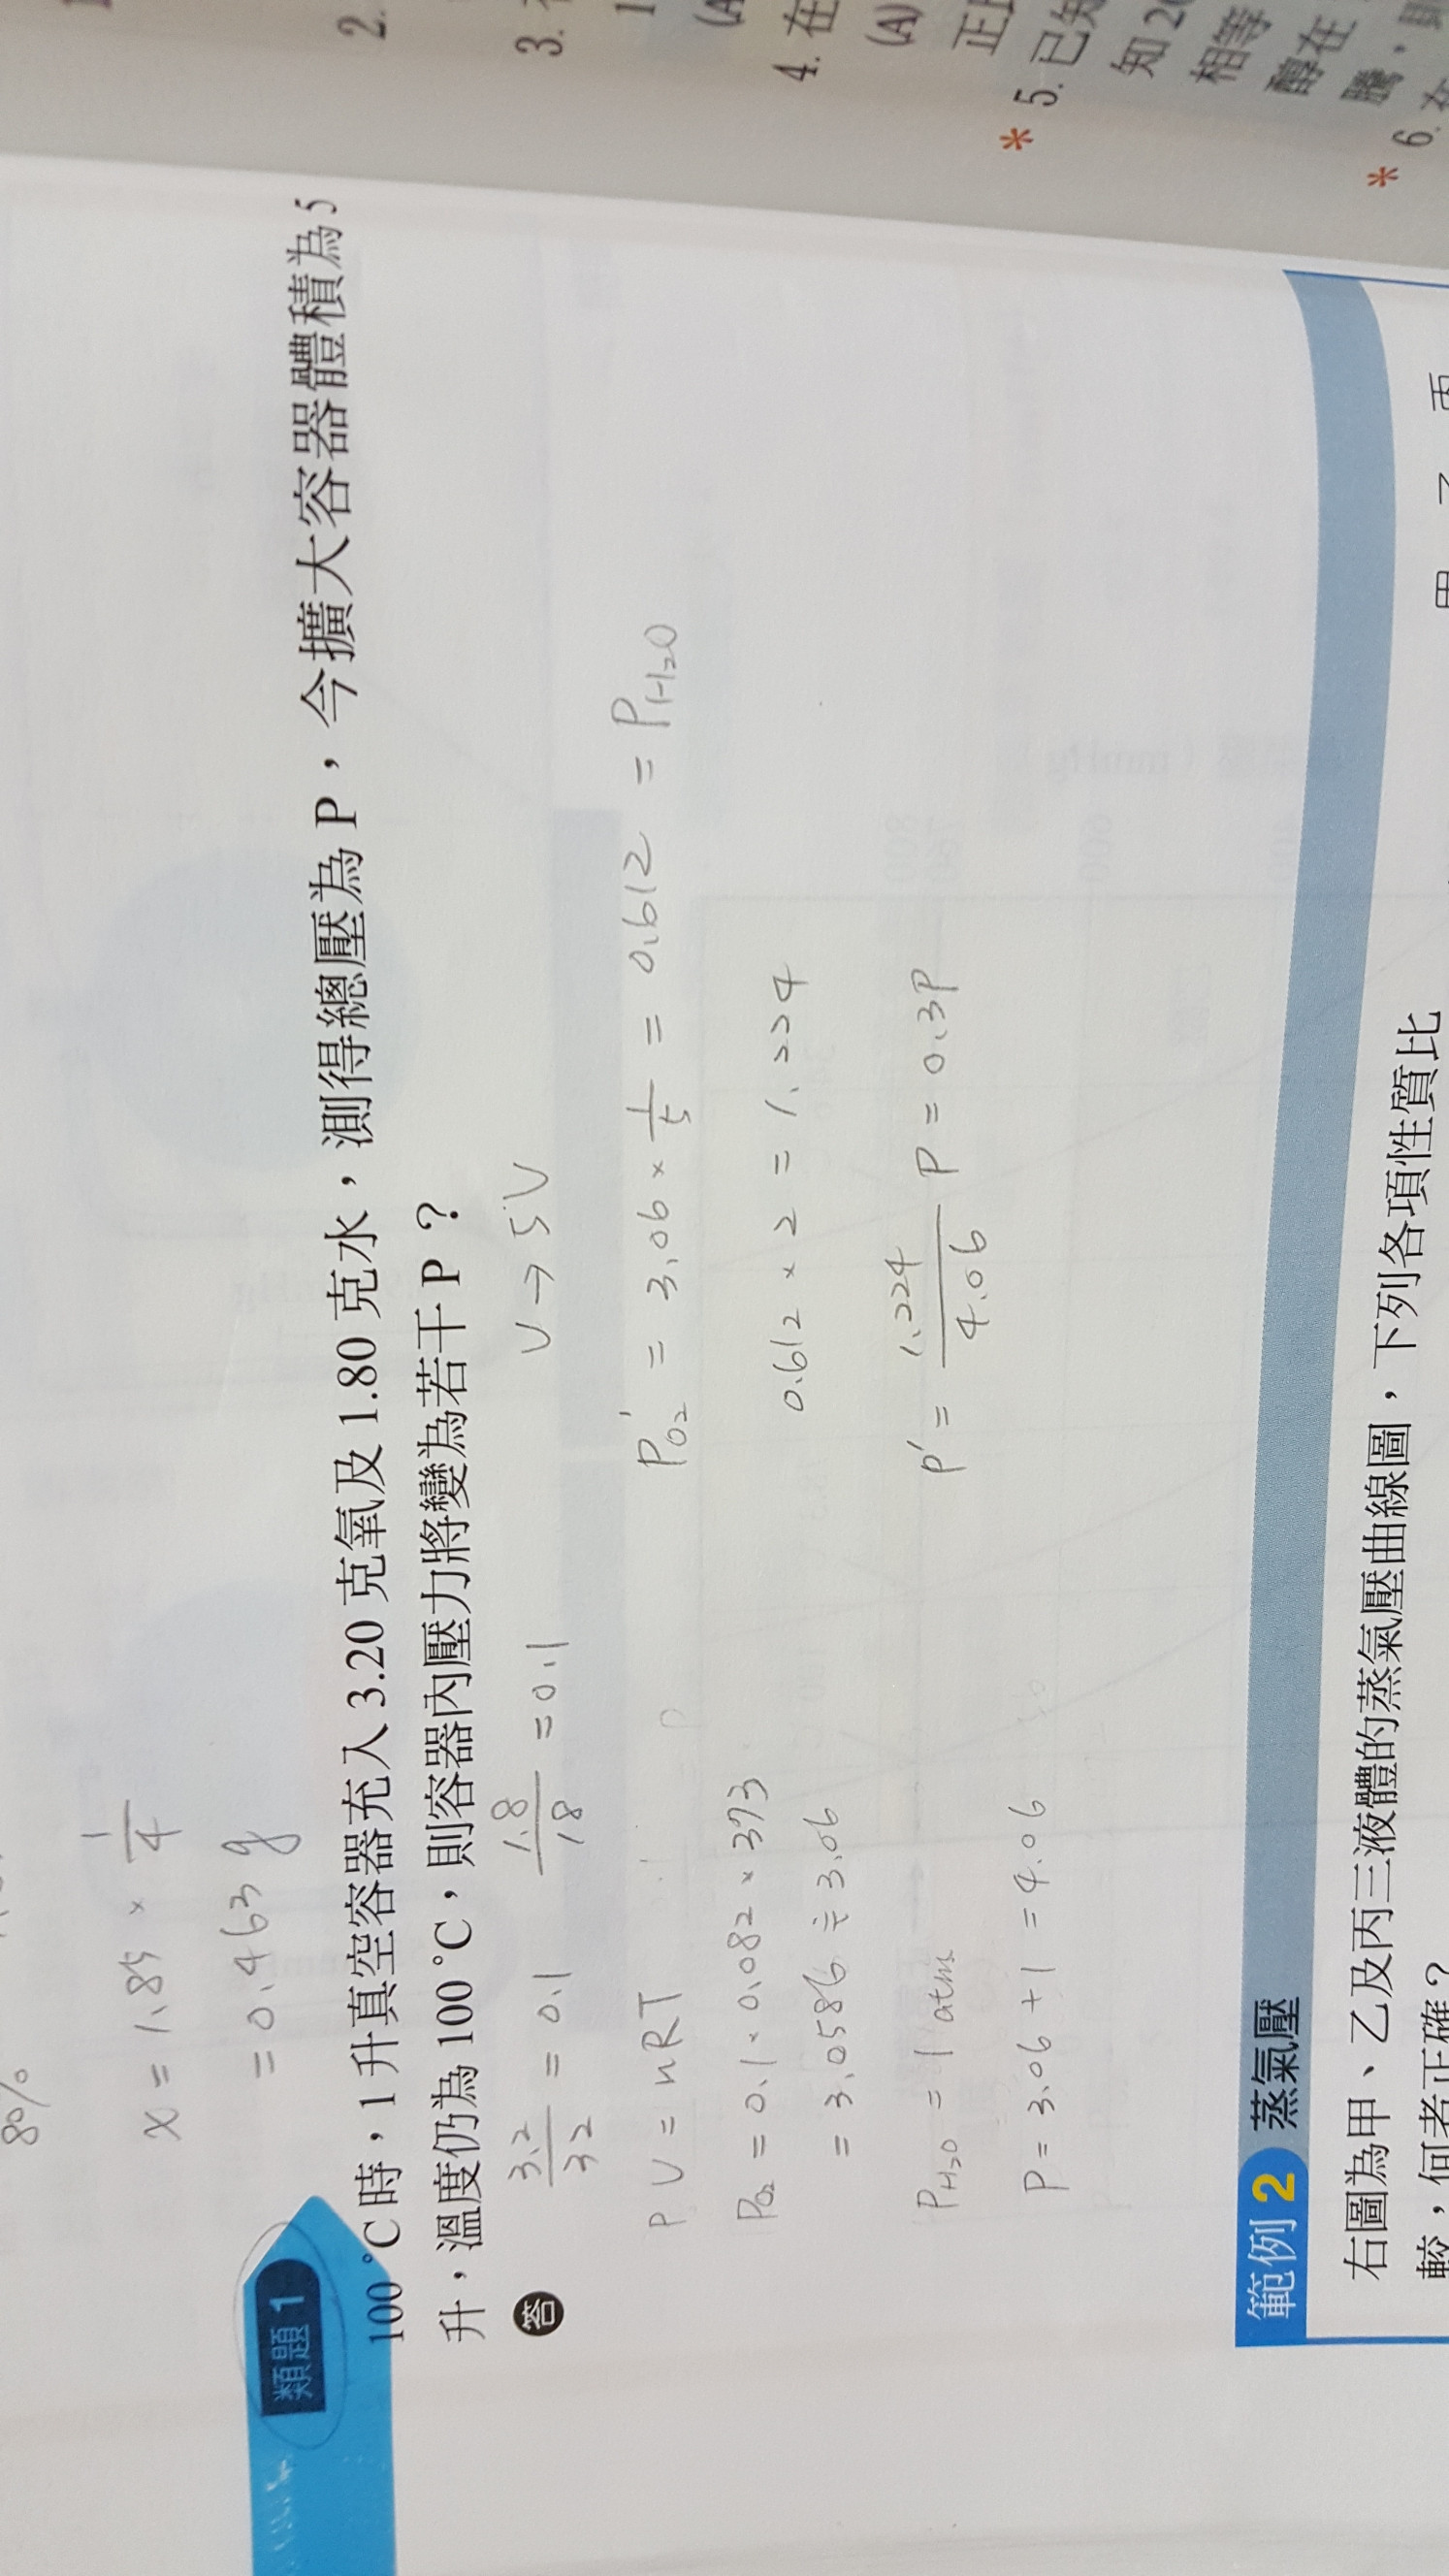 80%
x = 1.85 × 1/4
= 0.463 g
類題 1
100 °C 時，1 升真空容器充入 3.20 克氧及 1.80 克水，測得總壓為 P，今擴大容器體積為 5
升，溫度仍為 100 °C，則容器內壓力將變為若干 P？
答
3.2/32 = 0.1
1.8/18 = 0.1
V → 5V
PV = nRT
P O₂ = 0.1 × 0.082 × 373
= 3.0586 ≒ 3.06
P H₂O = 1 atm
P = 3.06 + 1 = 4.06
P O₂' = 3.06 × 1/5 = 0.612 = P H₂O
0.612 × 2 = 1.224
P' = 1.224/4.06 P = 0.3P
範例 2 蒸氣壓
右圖為甲、乙及丙三液體的蒸氣壓曲線圖，下列各項性質比
較，何者正確？
甲 乙 丙
2.
3.
4. 在
(A)
正
* 5. 已知
知 20
相等
醇在
騰，
* 6. 在